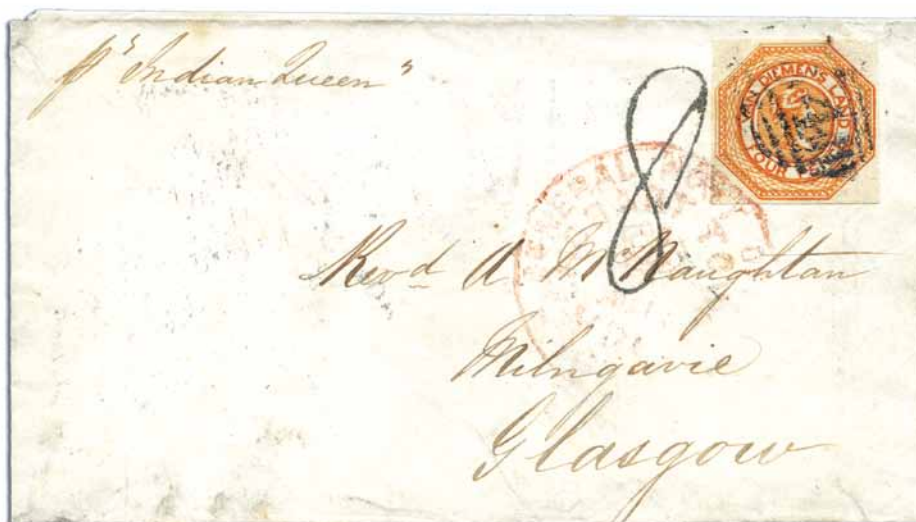 pr "Indian Queen"
VAN DIEMENS LAND
FOUR PENCE
8
GENERAL POST
Revd A McNaughtan
Milngavie
Glasgow